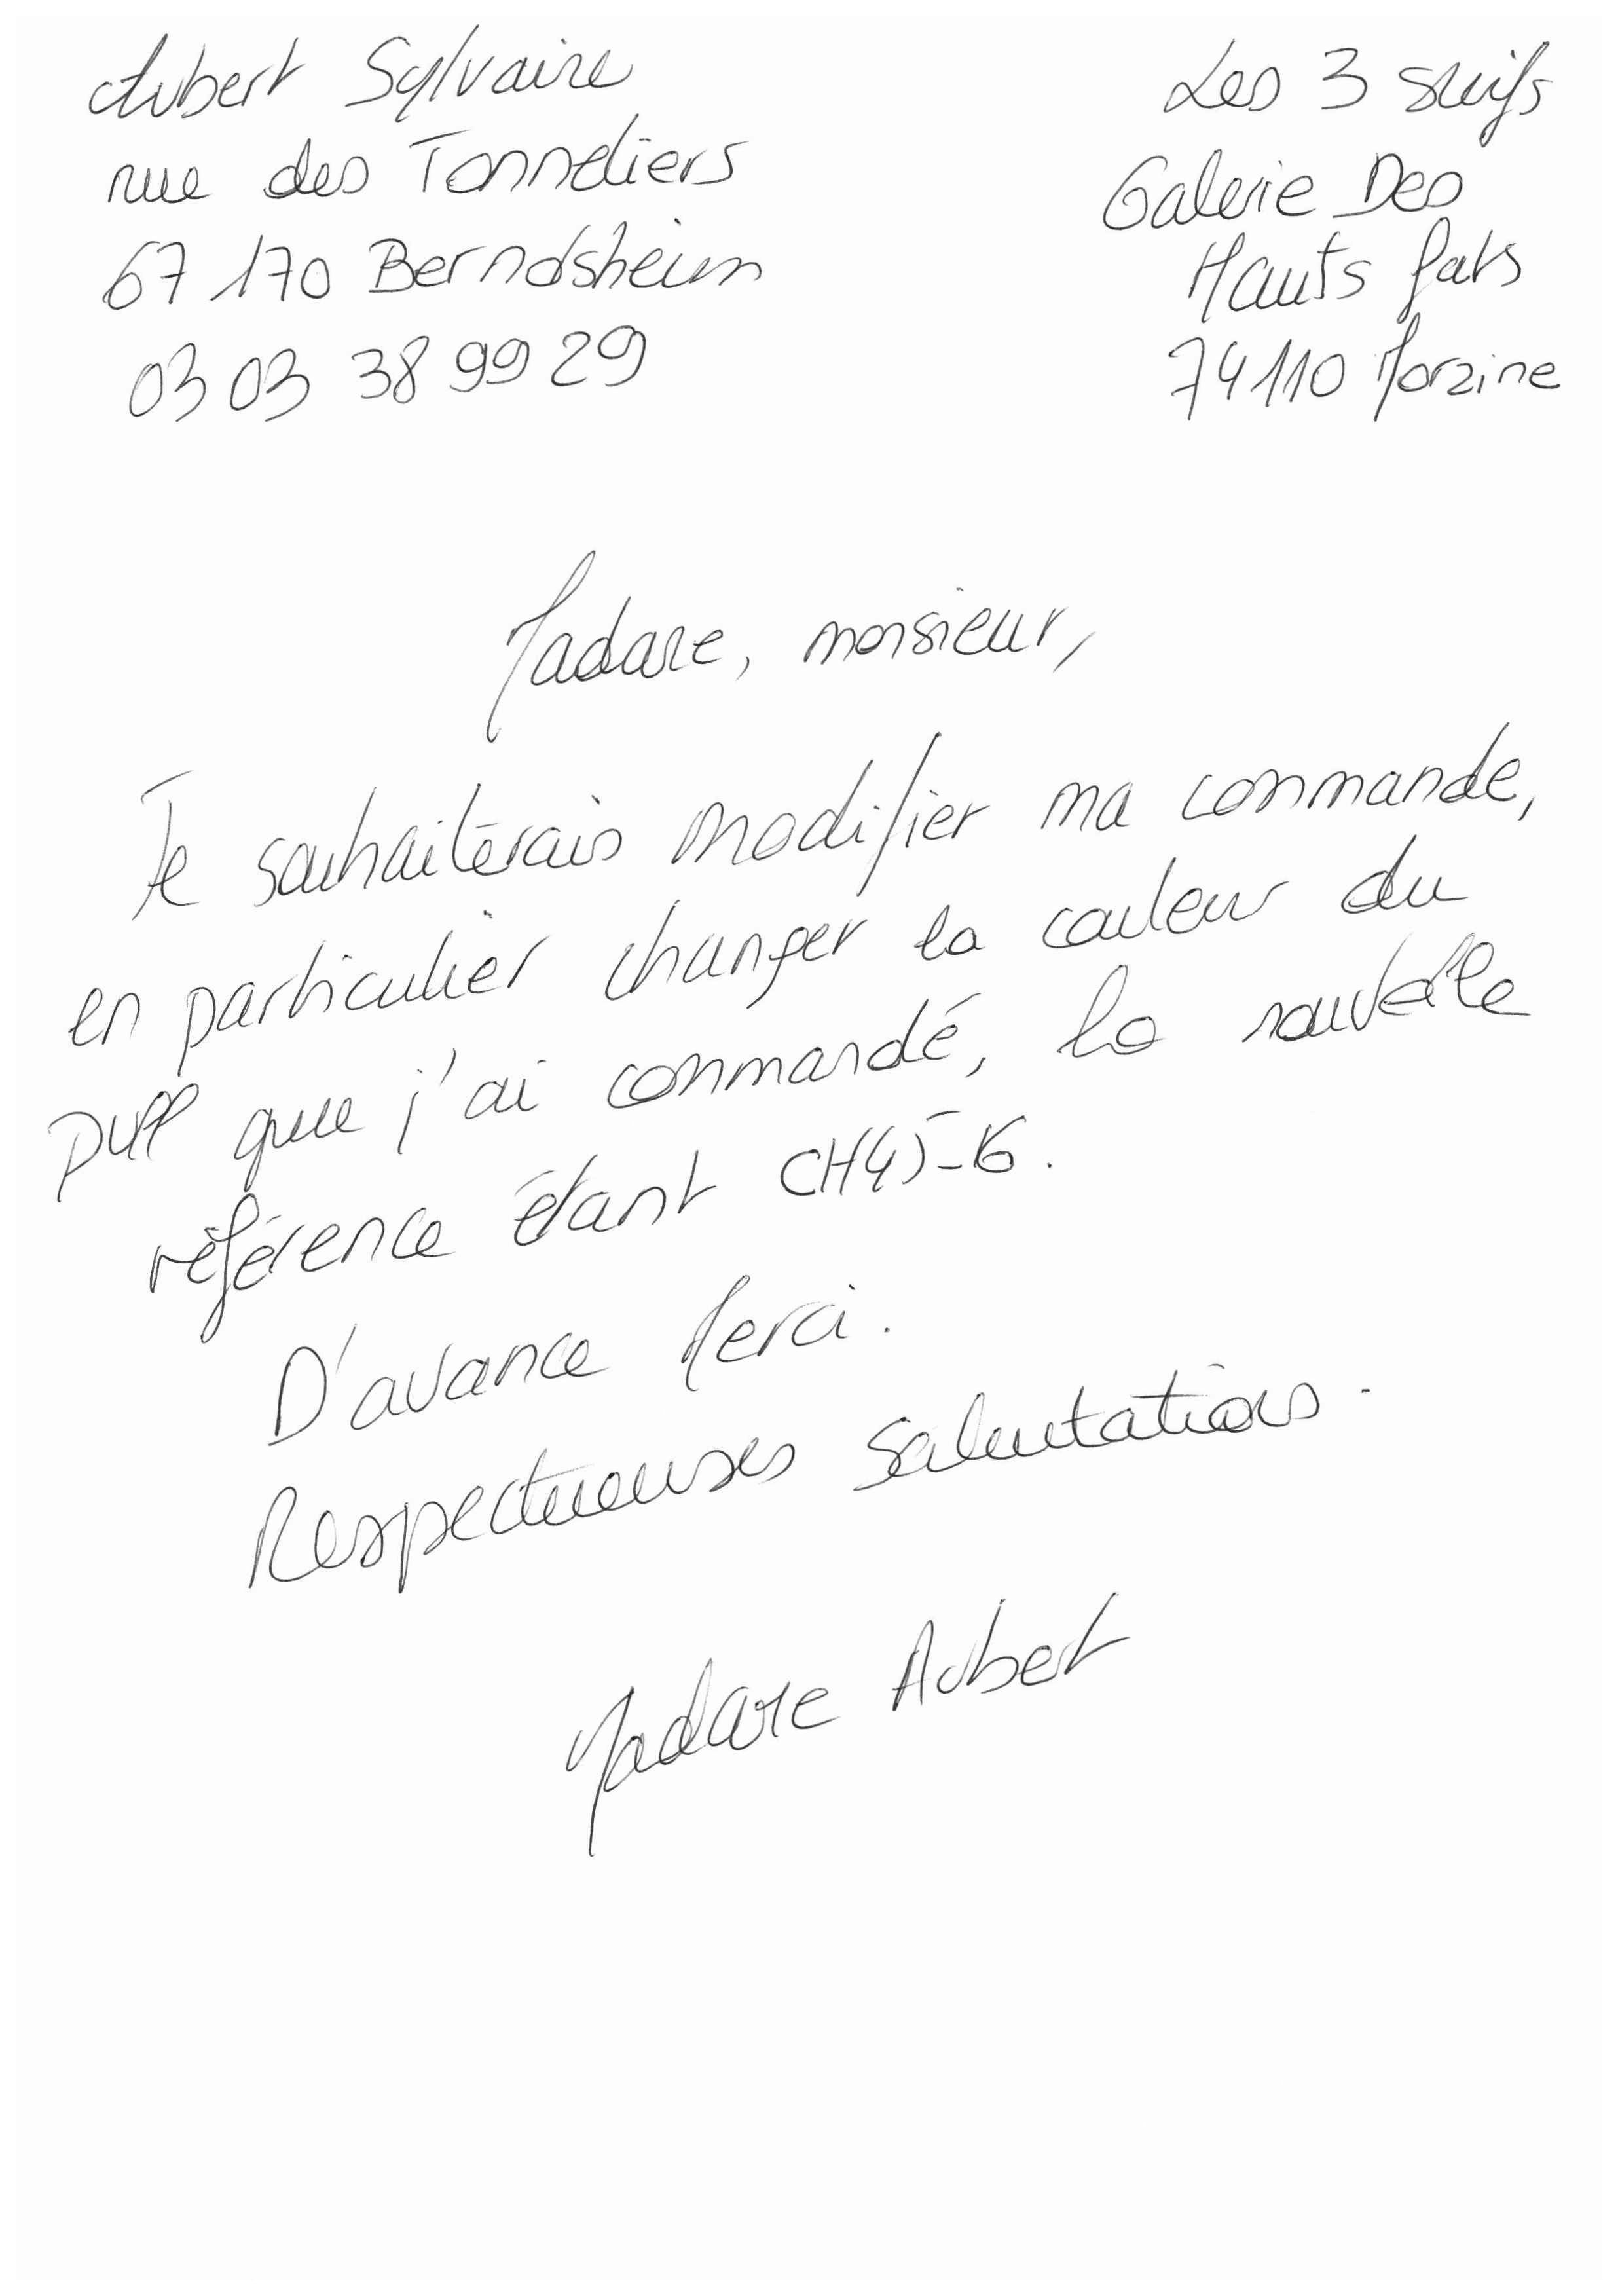 Aubert Sylvaine
rue des Tonneliers
67 170 Berndsheim
03 03 38 99 29
Les 3 suifs
Galerie Des
Hauts forts
74110 Morzine
Madame, monsieur,
Je souhaiterais modifier ma commande,
en particulier changer la couleur du
puff que j'ai commandé, la nouvelle
référence étant CH45-K6.
D'avance Merci.
Respectueuses salutations.
Madame Aubert